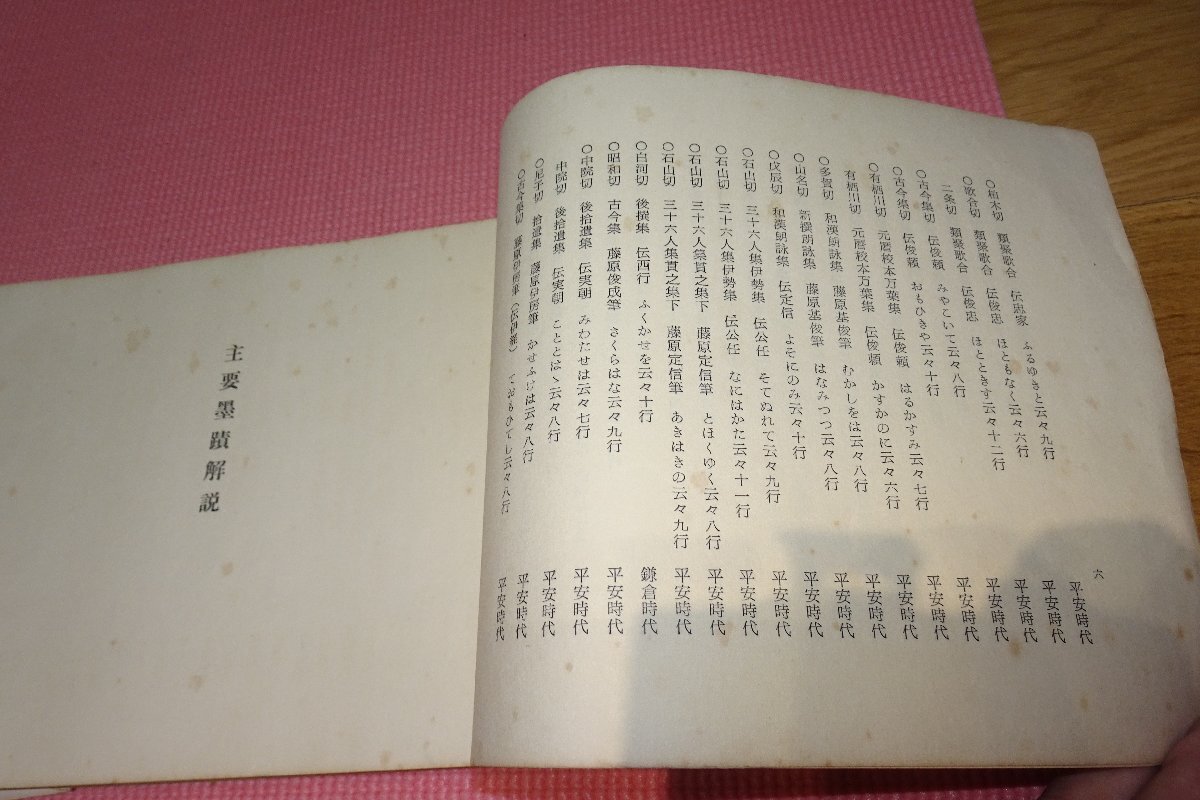 六
○柏木切 類聚歌合 伝忠家 ふるゆきと云々九行 平安時代
○歌合切 類聚歌合 伝俊忠 ほともなく云々六行 平安時代
二条切 類聚歌合 伝俊忠 ほとときす云々十二行 平安時代
○古今集切 伝俊頼 みやこいて云々八行 平安時代
○古今集切 伝俊頼 おもひきや云々十行 平安時代
○有栖川切 元暦校本万葉集 伝俊頼 はるかすみ云々七行 平安時代
有栖川切 元暦校本万葉集 伝俊頼 かすかのに云々六行 平安時代
○多賀切 和漢朗詠集 藤原基俊筆 むかしをは云々八行 平安時代
○山名切 新撰朗詠集 藤原基俊筆 はなみつつ云々八行 平安時代
○戊辰切 和漢朗詠集 伝定信 よそにのみ云々十行 平安時代
○石山切 三十六人集伊勢集 伝公任 そてぬれて云々九行 平安時代
○石山切 三十六人集伊勢集 伝公任 なにはかた云々十一行 平安時代
○石山切 三十六人集貫之集下 藤原定信筆 とほくゆく云々八行 平安時代
○石山切 三十六人集貫之集下 藤原定信筆 あきはきの云々九行 平安時代
○白河切 後撰集 伝西行 ふくかせを云々十行 鎌倉時代
○昭和切 古今集 藤原俊成筆 さくらはな云々九行 平安時代
○中院切 後拾遺集 伝実朝 みわたせは云々七行 平安時代
中院切 後拾遺集 伝実朝 こととはゝ云々八行 平安時代
○尼子切 拾遺集 藤原伊房筆 かせふけは云々八行 平安時代
○古今集切 藤原伊房筆 ておもひてし云々八行 平安時代
主要墨蹟解説